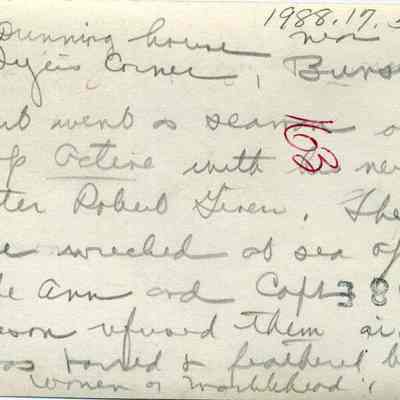 1988.17.
Dunning house near
Dyers Corner, Buns
ut went as seaman o
p Active with his ne
ter Robert Given. The
e wrecked at sea of
e Ann and Capt 38
eson refused them ai
as tarred & feathered b
women of Marblehead."
163